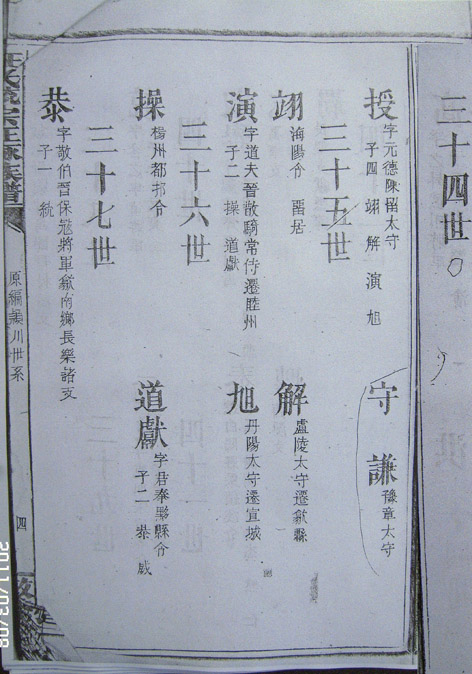 三十四世
授
字元德陳留太守
子四 翊 解 演 旭
守謙
豫章太守
三十五世
翊
海陽令
酉居
解
盧陵太守遷歙縣
演
字道夫晉散騎常侍遷睦州
子二 操 道獻
旭
丹陽太守遷宣城
三十六世
操
楊州都邦令
道獻
字君奉黟縣令
子二 恭 戚
三十七世
恭
字敬伯晉保冠將軍歙南鄉長樂諸支
子一 統
原編 川世系
四
2011/03/08